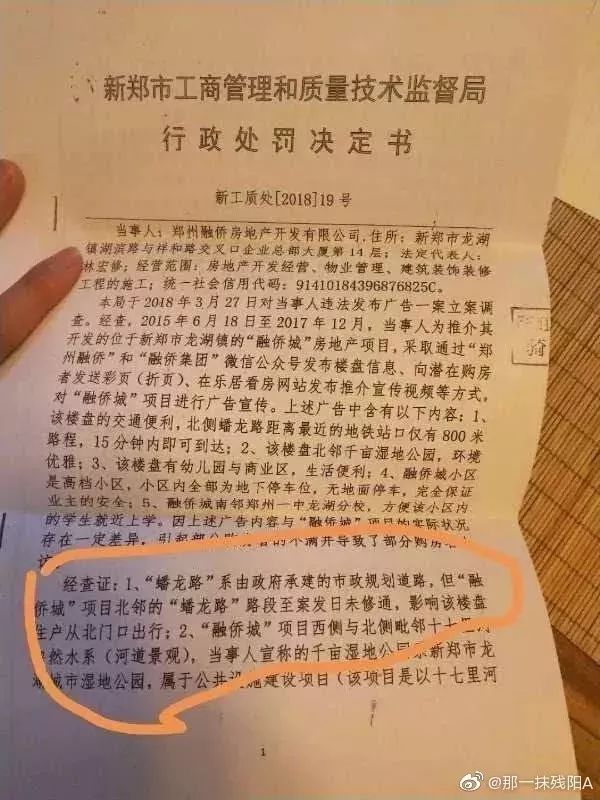 新郑市工商管理和质量技术监督局
行政处罚决定书
新工质处[2018]19号
当事人：郑州融侨房地产开发有限公司,住所：新郑市龙湖
镇湖滨路与祥和路交叉口企业总部大厦第14层；法定代表人：
林宏修；经营范围：房地产开发经营、物业管理、建筑装饰装修
工程的施工；统一社会信用代码：91410184396876825C。
本局于2018年3月27日对当事人违法发布广告一案立案调
查。经查，2015年6月18日至2017年12月，当事人为推介其
开发的位于新郑市龙湖镇的“融侨城”房地产项目，采取通过“郑
州融侨”和“融侨集团”微信公众号发布楼盘信息、向潜在购房
者发送彩页（折页）、在乐居看房网站发布推介宣传视频等方式，
对“融侨城”项目进行广告宣传。上述广告中含有以下内容：1、
该楼盘的交通便利，北侧蟠龙路距离最近的地铁站口仅有800米
路程，15分钟内即可到达；2、该楼盘北邻千亩湿地公园，环境
优雅；3、该楼盘有幼儿园与商业区，生活便利；4、融侨城小区
是高档小区，小区内全部为地下停车位，无地面停车，完全保证
业主的安全；5、融侨城南邻郑州一中龙湖分校，方便该小区内
的学生就近上学。因上述广告内容与“融侨城”项目的实际状况
存在一定差异，引起部分购房者的不满并导致了部分购房者
经查证：1、“蟠龙路”系由政府承建的市政规划道路，但“融
侨城”项目北邻的“蟠龙路”路段至案发日未修通，影响该楼盘
住户从北门口出行；2、“融侨城”项目西侧与北侧毗邻十七里河
自然水系（河道景观），当事人宣称的千亩湿地公园系新郑市龙
湖城市湿地公园，属于公共设施建设项目（该项目是以十七里河
1
骑
@那一抹残阳A